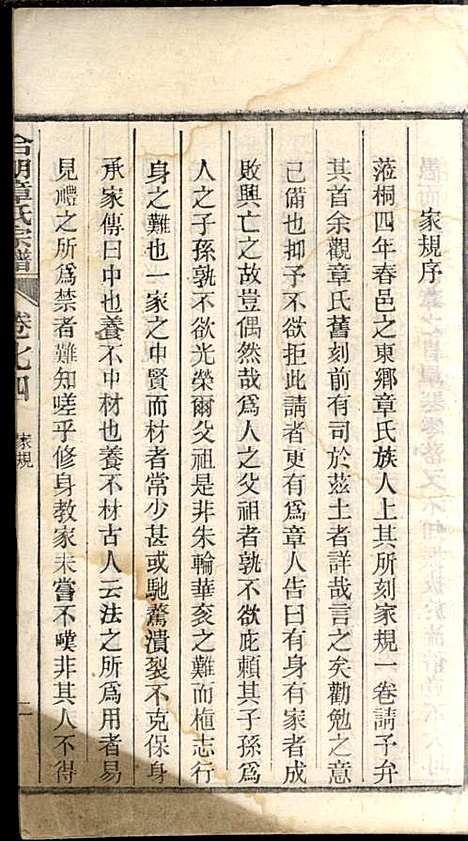 家規序
蒞桐四年春邑之東鄉章氏族人上其所刻家規一卷請予弁
其首余觀章氏舊刻前有司於茲土者詳哉言之矣勸勉之意
已備也抑予不欲拒此請者更有爲章人告曰有身有家者成
敗興亡之故豈偶然哉爲人之父祖者孰不欲庇賴其子孫爲
人之子孫孰不欲光榮爾父祖是非朱輪華袞之難而植志行
身之難也一家之中賢而材者常少甚或馳騖潰裂不克保身
承家傳曰中也養不中材也養不材古人云法之所爲用者易
見禮之所爲禁者難知嗟乎修身教家未嘗不嘆非其人不得
章氏宗譜
卷之四
家規
二